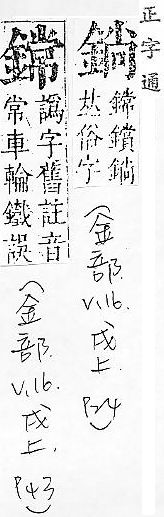 正字通
鋿
鏛鋿
𠀤俗字
(金部. V.16. 戌上. P24)
鏛
譌字舊註音
常車輪鐵誤
(金部. V.16. 戌上. P43)